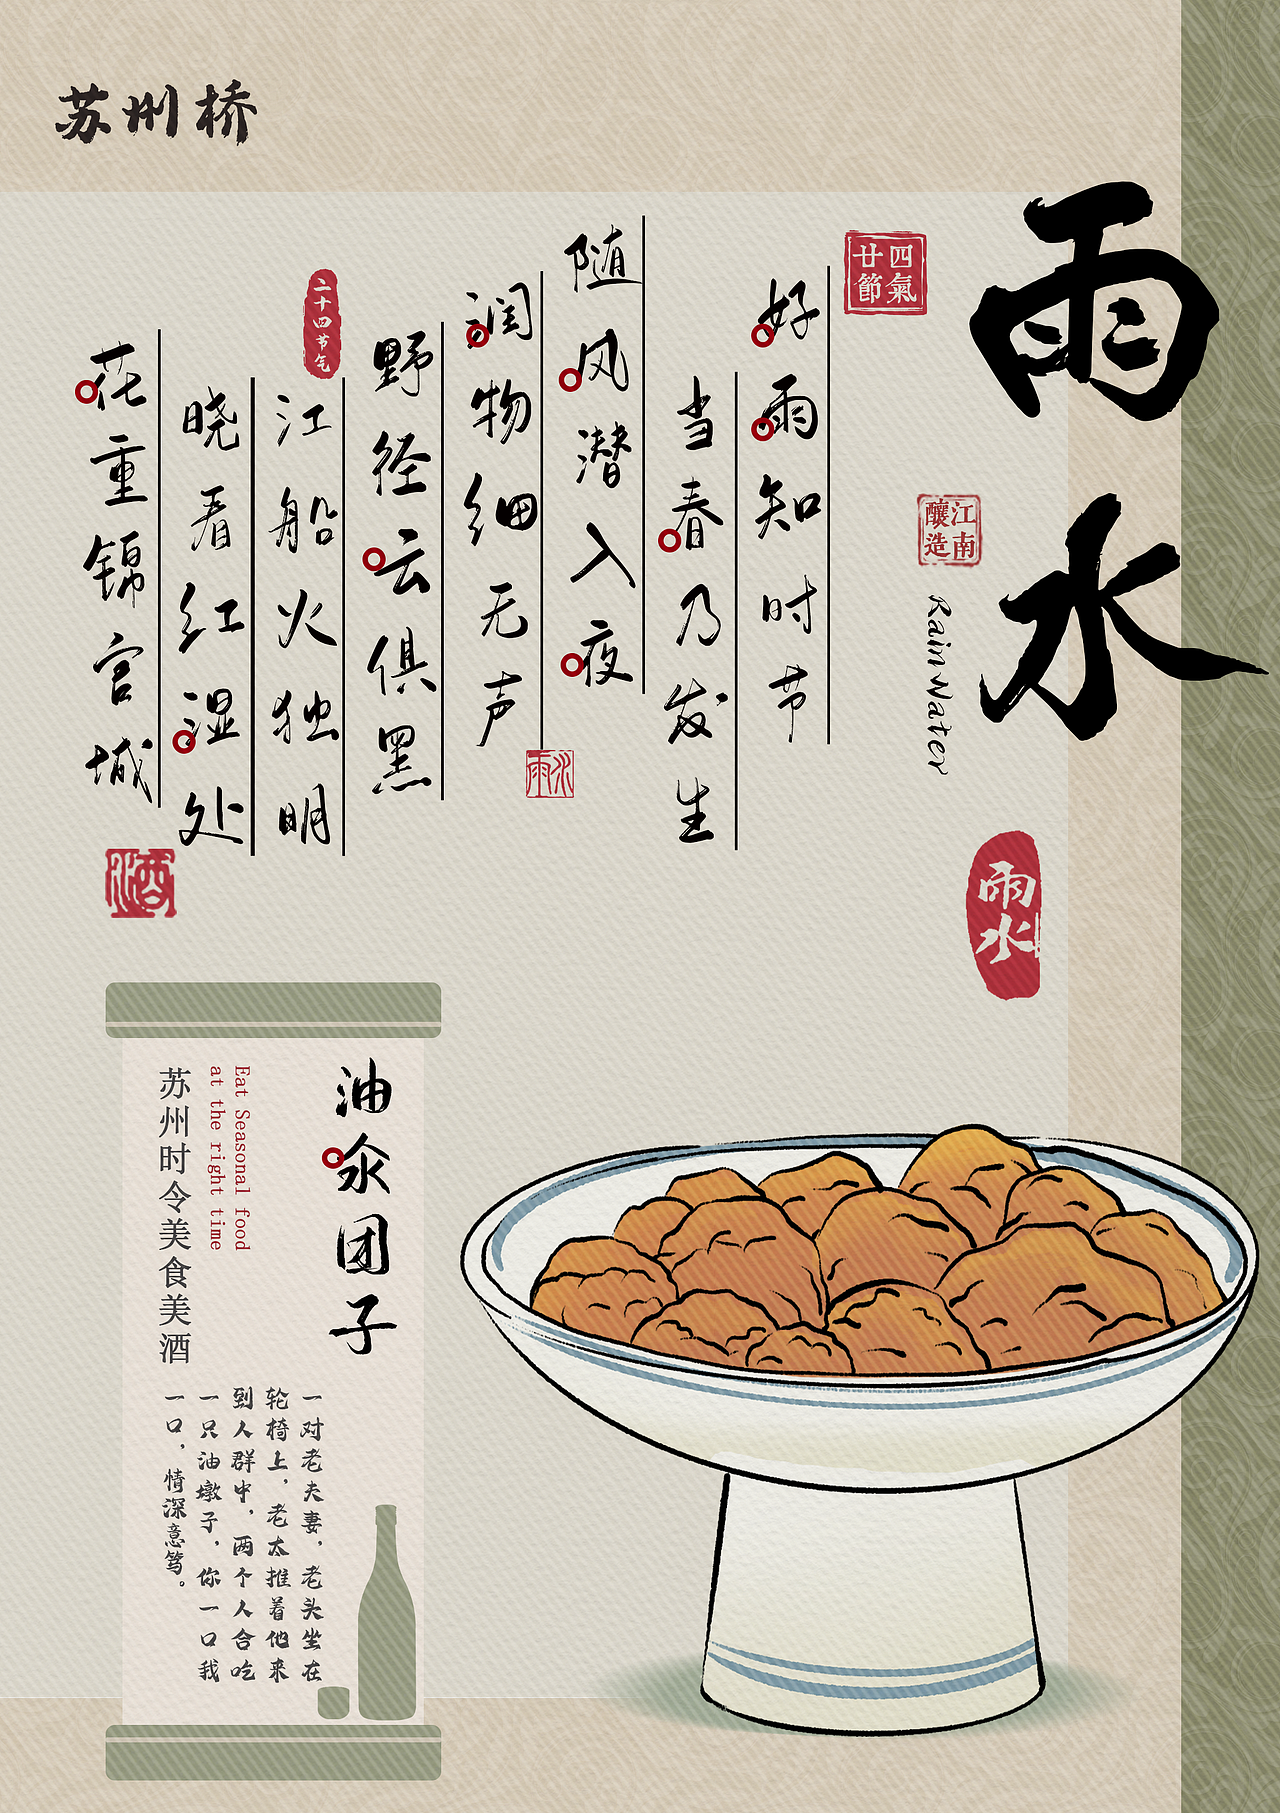 苏州桥
雨水
四氣
廿節
江南
釀造
Rain Water
好雨知时节
当春乃发生
随风潜入夜
润物细无声
雨水
野径云俱黑
江船火独明
二十四节气
晓看红湿处
花重锦官城
酒
雨水
油氽团子
Eat Seasonal food
at the right time
苏州时令美食美酒
一对老夫妻，老头坐在
轮椅上，老太推着他来
到人群中，两个人合吃
一只油墩子，你一口我
一口，情深意笃。